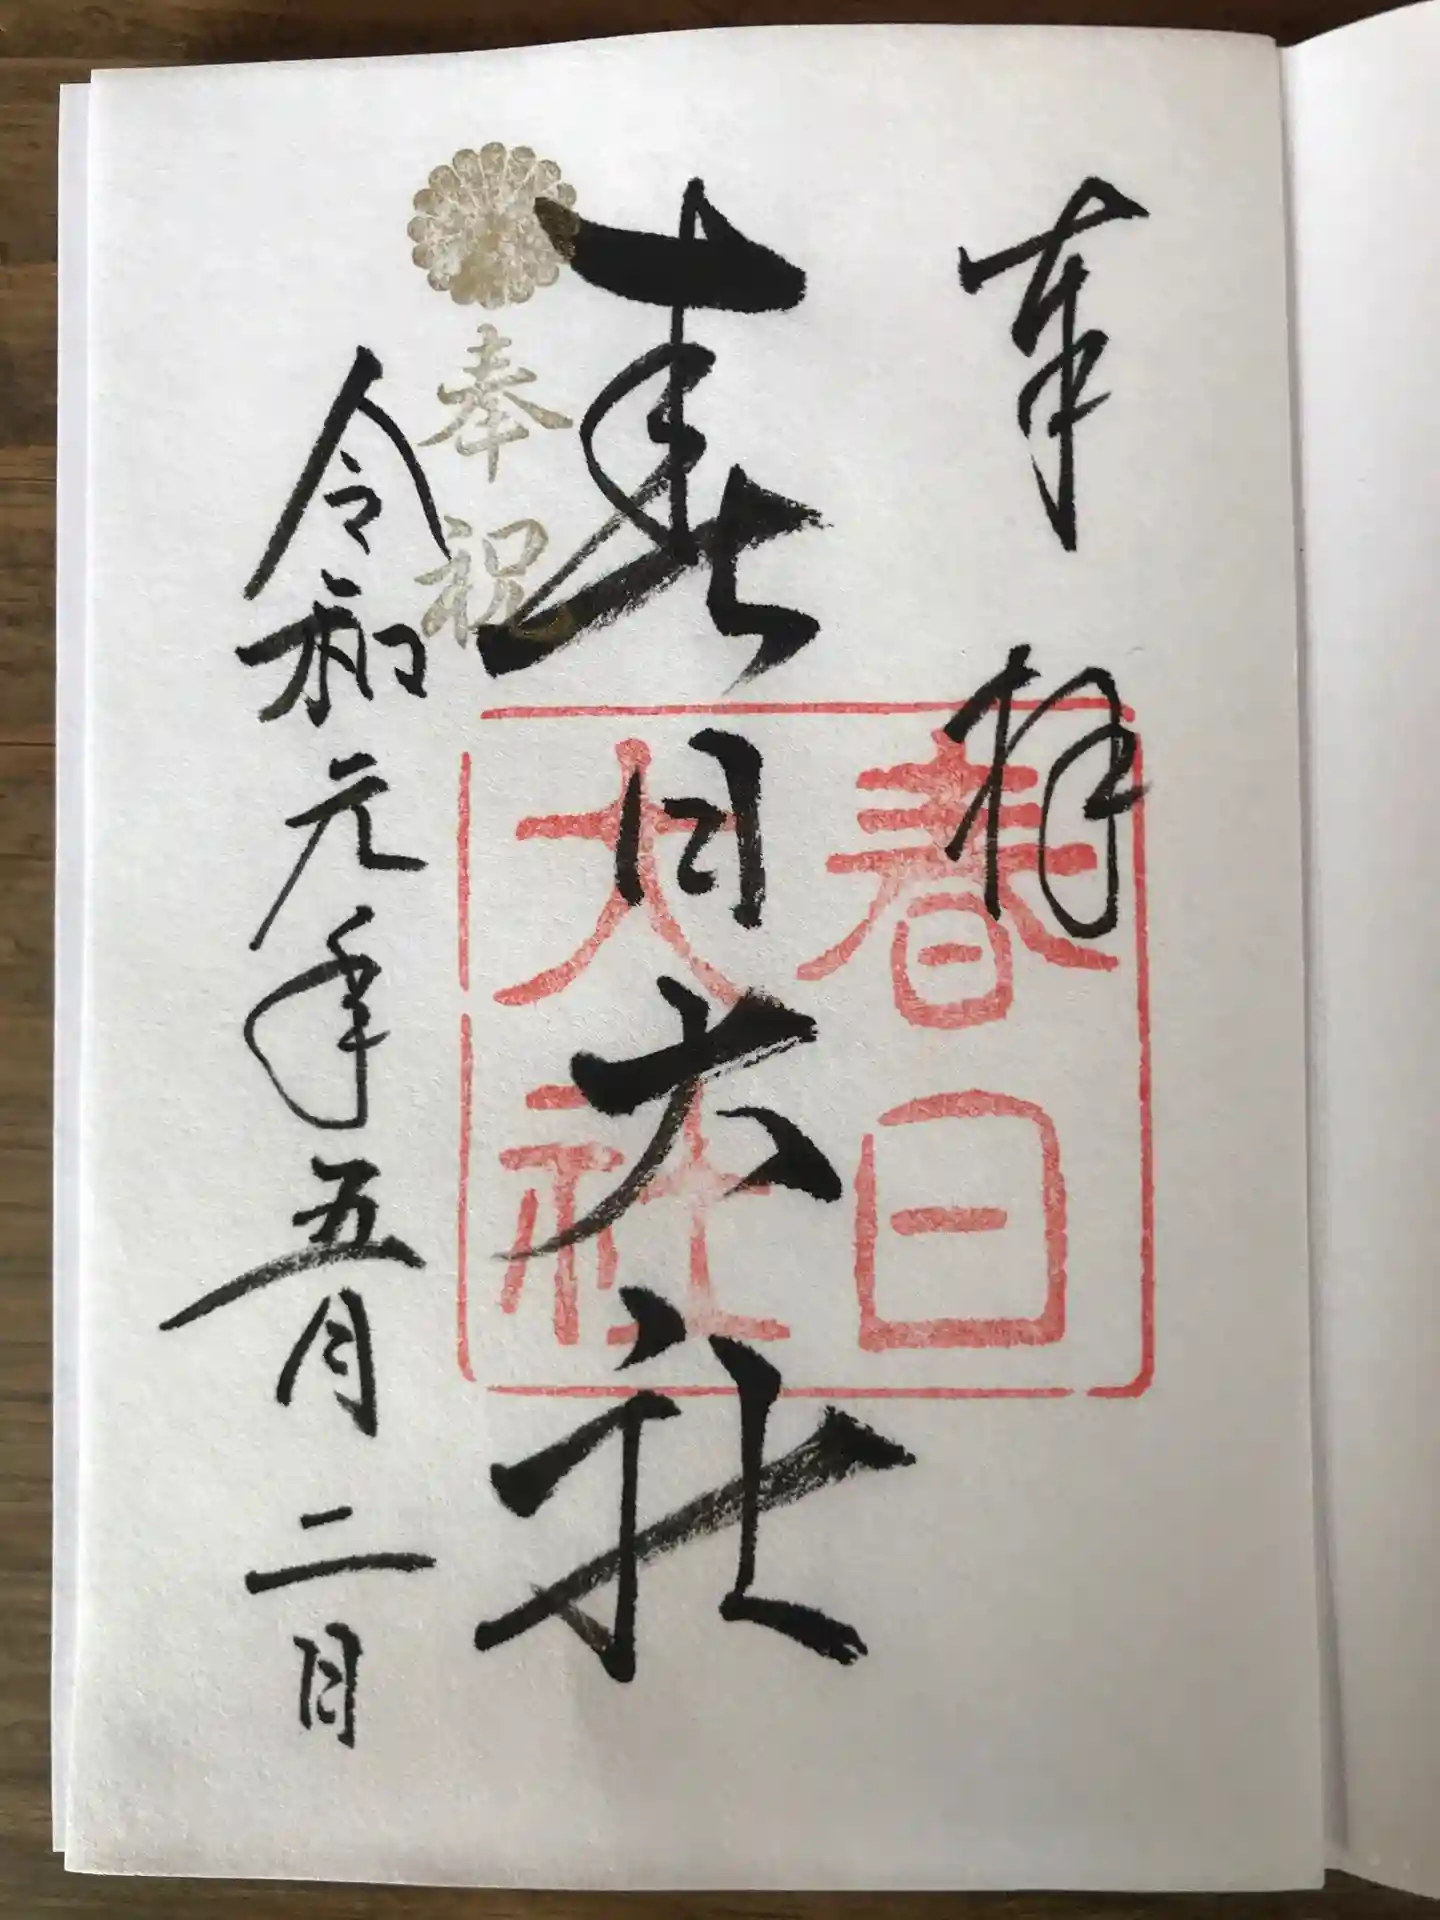 奉拝
春日大社
春日
大社
奉祝
令和元年五月二日